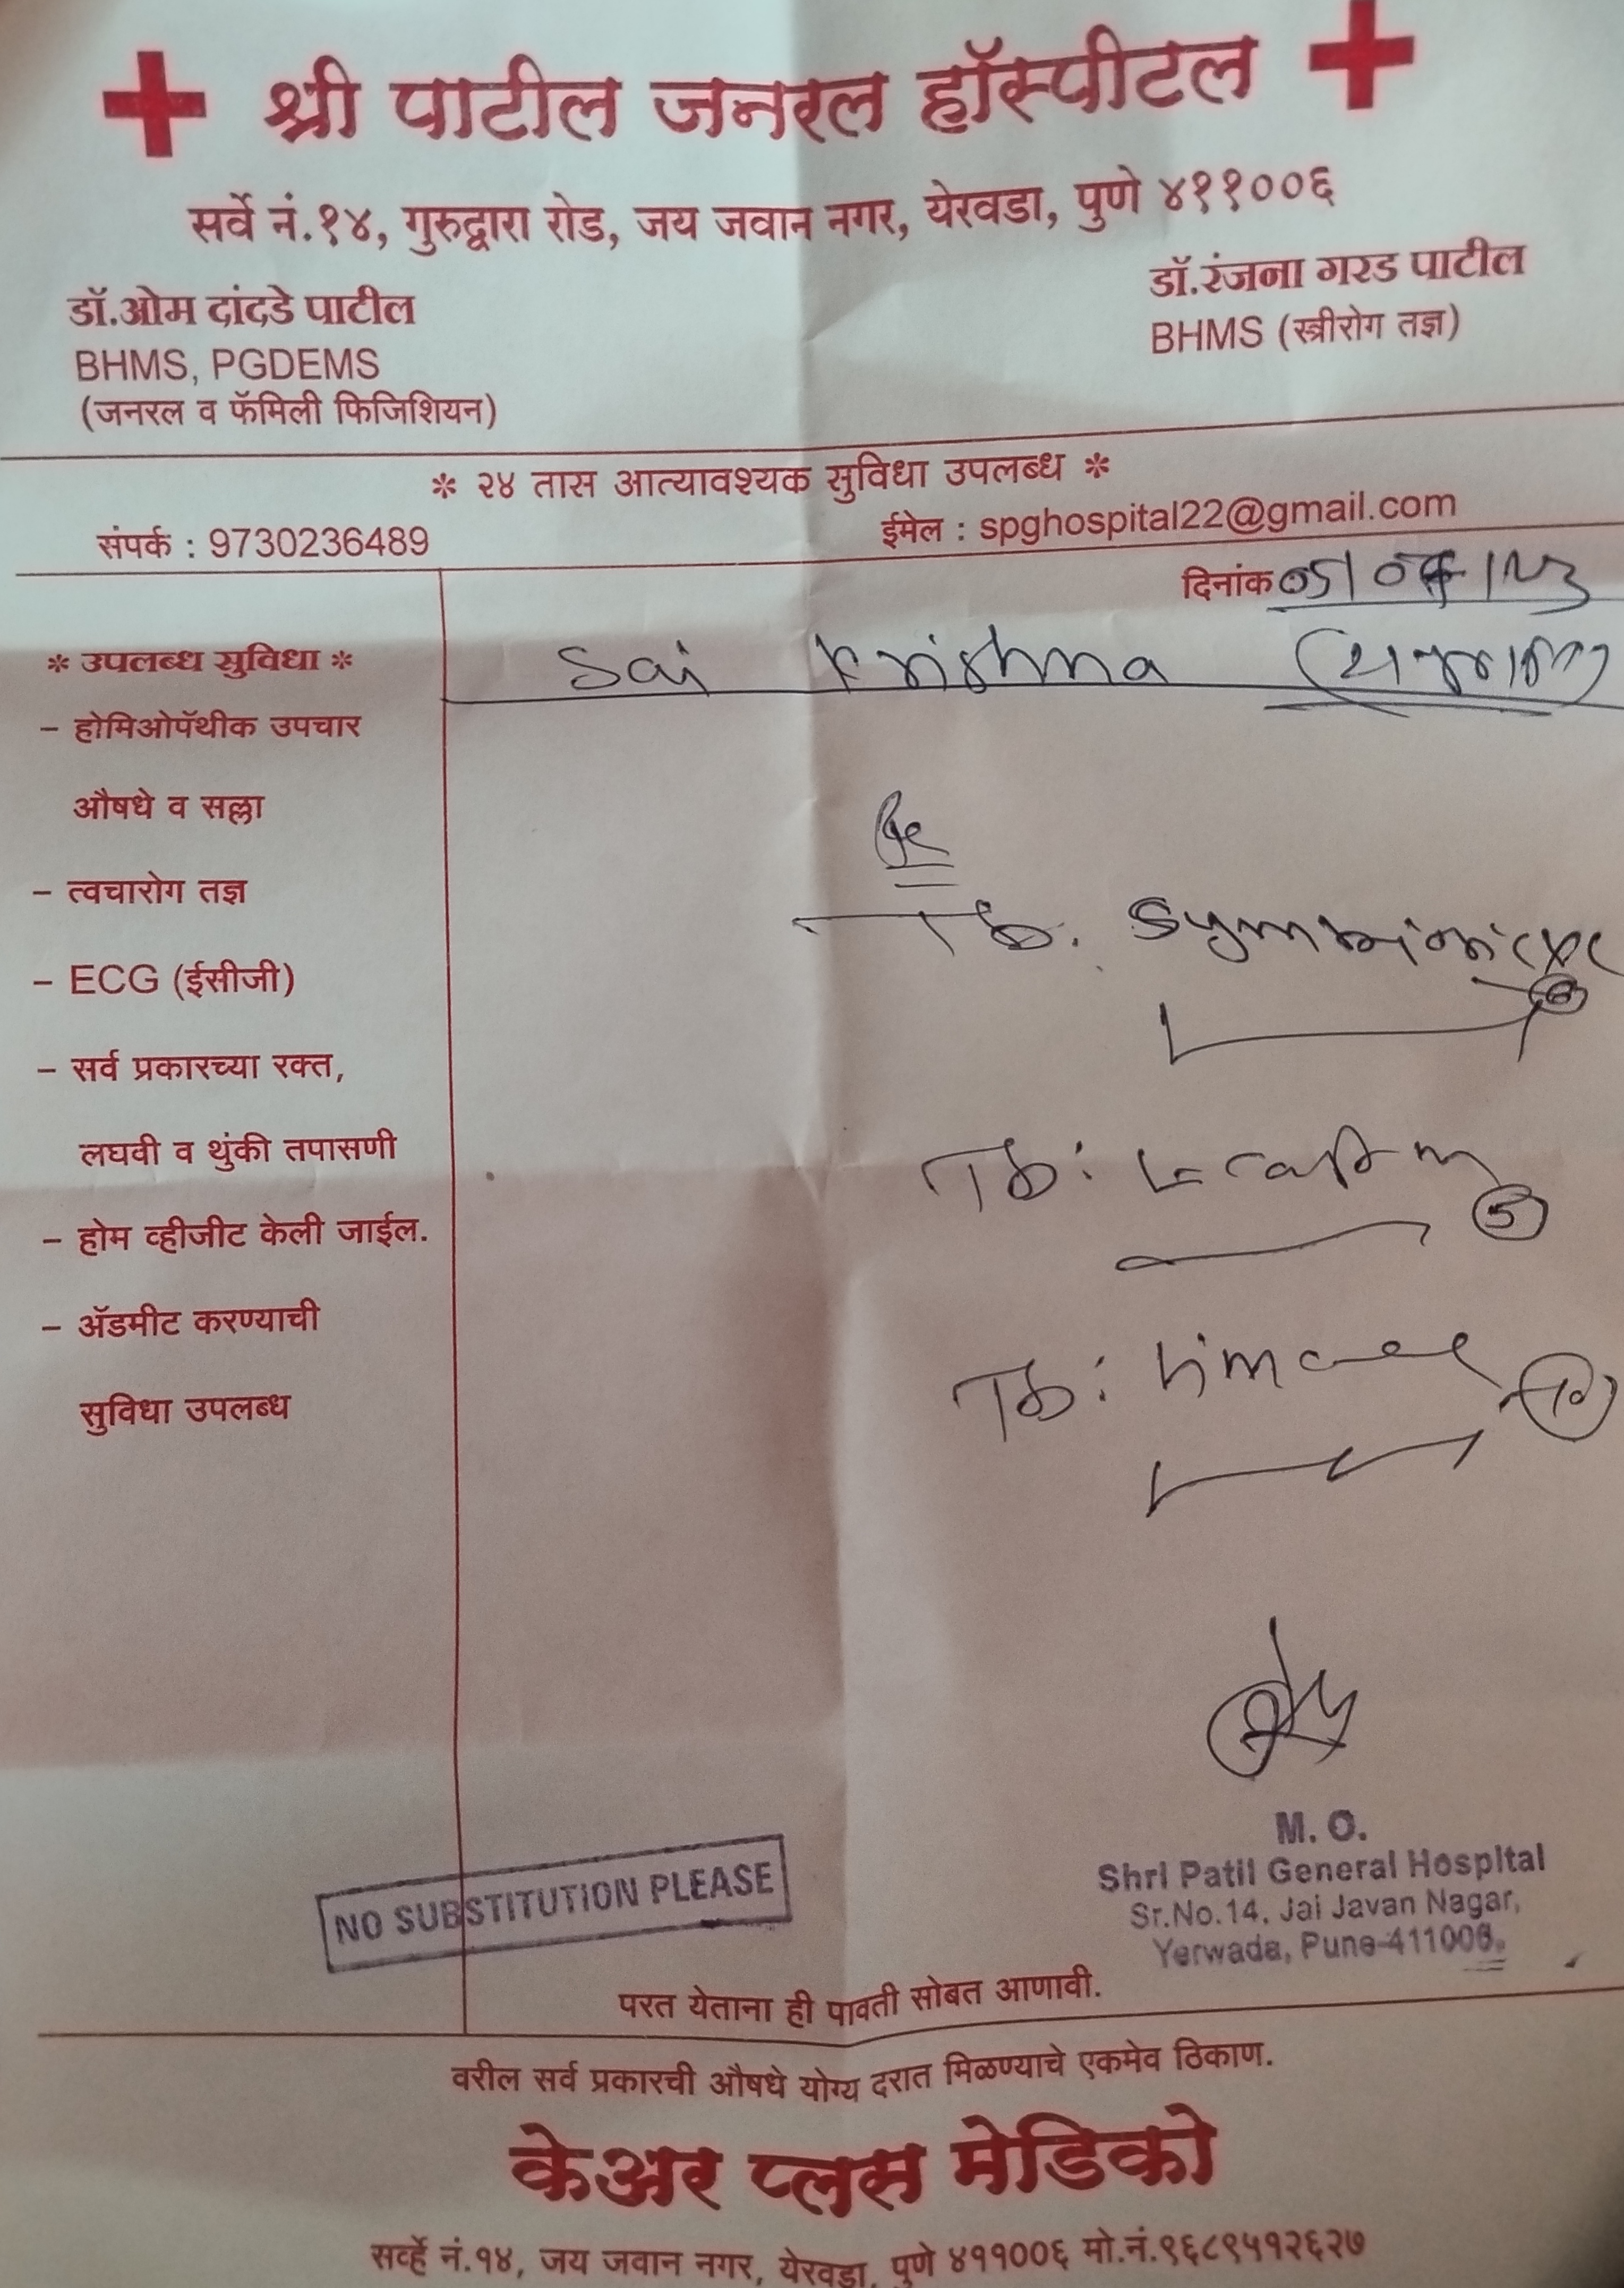 श्री पाटील जनरल हॉस्पीटल
सर्वे नं.१४, गुरुद्वारा रोड, जय जवान नगर, येरवडा, पुणे ४११००६
डॉ.ओम दांदडे पाटील
BHMS, PGDEMS
(जनरल व फॅमिली फिजिशियन)
डॉ.रंजना गरड पाटील
BHMS (स्त्रीरोग तज्ञ)
* २४ तास आत्यावश्यक सुविधा उपलब्ध *
संपर्क : 9730236489
ईमेल : spghospital22@gmail.com
दिनांक
Sai Krishna
* उपलब्ध सुविधा *
– होमिओपॅथीक उपचार
औषधे व सल्ला
– त्वचारोग तज्ञ
– ECG (ईसीजी)
– सर्व प्रकारच्या रक्त,
लघवी व थुंकी तपासणी
– होम व्हीजीट केली जाईल.
– ॲडमीट करण्याची
सुविधा उपलब्ध
Tb.
Tb:
5
Tb:
10
M. O.
Shri Patil General Hospital
Sr.No.14, Jai Javan Nagar,
Yerwada, Pune-411006.
NO SUBSTITUTION PLEASE
परत येताना ही पावती सोबत आणावी.
वरील सर्व प्रकारची औषधे योग्य दरात मिळण्याचे एकमेव ठिकाण.
केअर प्लस मेडिको
सर्व्हे नं.१४, जय जवान नगर, येरवडा, पुणे ४११००६ मो.नं.९६८९५१२६२७